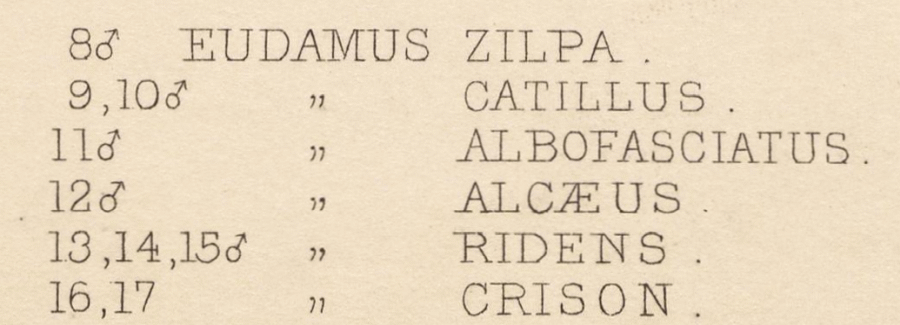 8♂ EUDAMUS ZILPA.
9,10♂ „ CATILLUS.
11♂ „ ALBOFASCIATUS.
12♂ „ ALCÆUS.
13,14,15♂ „ RIDENS.
16,17 „ CRISON.